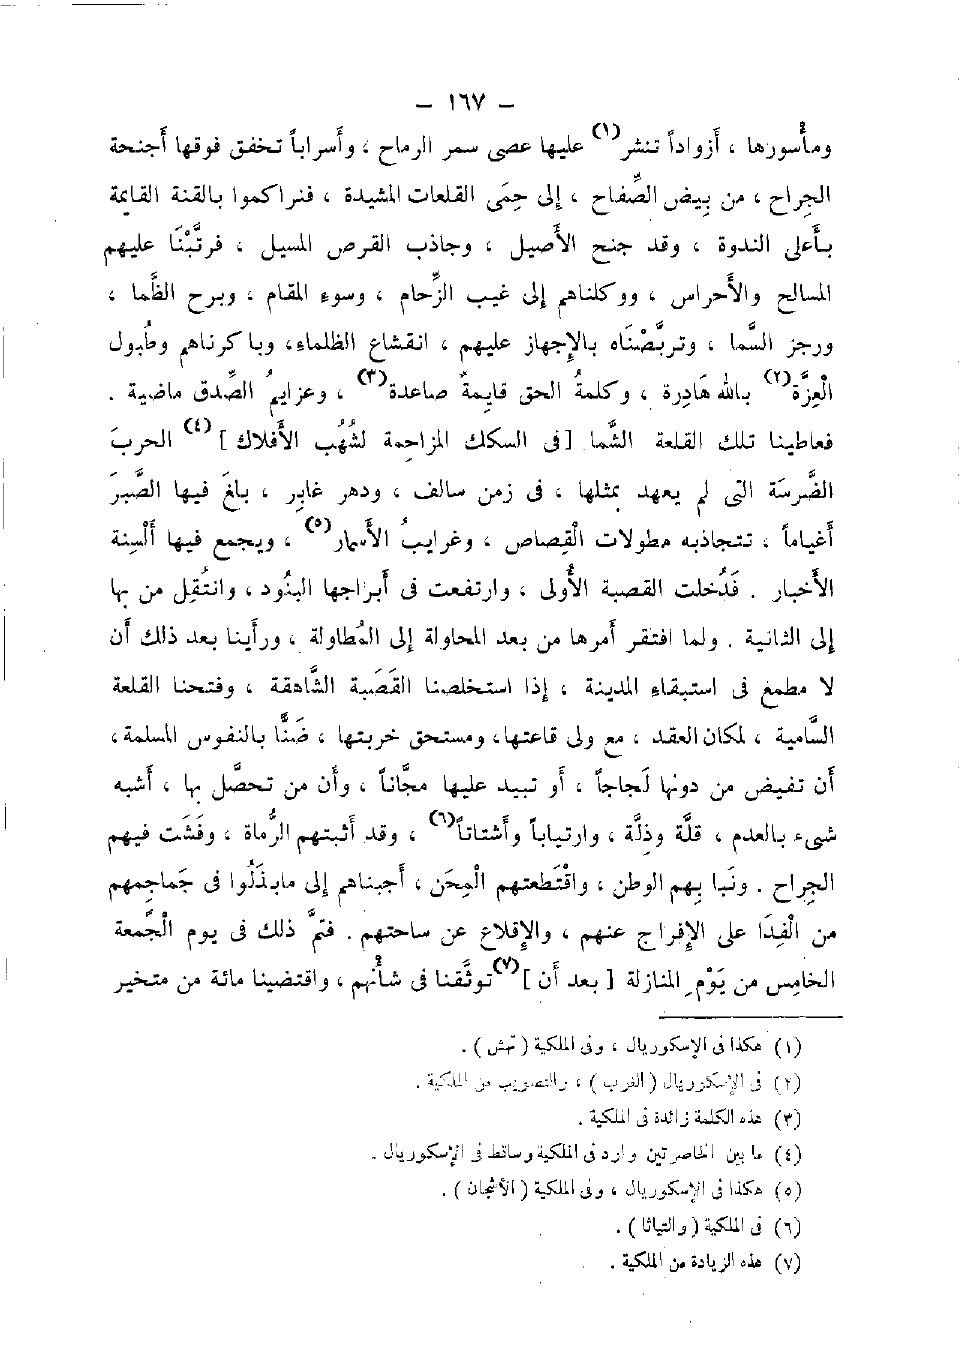 — ١٦٧ —
ومأسورها ، أزواداً تنشر(١) عليها عصى سمر الرماح ، وأسراباً تخفق فوقها أجنحة
الجِراح ، من بِيض الصِّفاح ، إلى حِمَى القلعات المشيدة ، فتراكموا بالقنة القايمة
بأعلى الندوة ، وقد جنح الأصيل ، وجاذب القرص المسيل ، فرتَّبْنَا عليهم
المسالح والأحراس ، ووكلناهم إلى غيب الزِّحام ، وسوء المقام ، وبرح الظَّما ،
ورجز السَّما ، وتربَّصْنَاه بالإجهاز عليهم ، انقشاع الظلماء، وباكرناهم وطُبول
الْعِزَّة(٢) بالله هَادِرة ، وكلمةُ الحق قايمةٌ صاعدة(٣) ، وعزايمُ الصِّدق ماضية .
فعاطينا تلك القلعة الشَّما [فى السكك المزاحمة لشُهُب الأفلاك ] (٤) الحربَ
الضَّرسَة التى لم يعهد بمثلها ، فى زمن سالف ، ودهر غابِر ، بلغَ فيها الصَّبرَ
أغياماً ، تتجاذبه مطولات الْقِصاص ، وغرايبُ الأسمار(٥) ، ويجمع فيها ألْسِنة
الأخبار . فَدُخلت القصبة الأُولى ، وارتفعت فى أبراجها البنُود ، وانتُقِل من بها
إلى الثانية . ولما افتقر أمرها من بعد المحاولة إلى المُطاولة ، ورأينا بعد ذلك أن
لا مطمع فى استبقاء المدينة ، إذا استخلصنا القَصَبة الشَّاهقة ، وفتحنا القلعة
السَّامية ، لمكان العقد ، مع ولى قاعتها، ومستحق خربتها ، ضَنًّا بالنفوس المسلمة،
أن تفيض من دونها لَجاجاً ، أو تبيد عليها مجَّاناً ، وأن من تحصَّل بها ، أشبه
شىء بالعدم ، قلَّة وذِلَّة ، وارتياباً وأشتاتاً(٦) ، وقد أثبتهم الرُّماة ، وفَشَت فيهم
الجِراح . ونَبا بِهم الوطن ، واقْتَطعتهم الْمِحَن ، أجبناهم إلى مابذَلُوا فى جَماجِمهم
من الْفِدَا على الإفراج عنهم ، والإقلاع عن ساحتهم . فتمَّ ذلك فى يوم الْجُمعة
الخامِس من يَوْمِ المنازلة [ بعد أن ](٧) توثَّقنا فى شأنهم ، واقتضينا مائة من متخير
(١) هكذا فى الإسكوريال ، وفى الملكية ( تهش ) .
(٢) فى الإسكوريال ( الغرب ) ، والتصويب من الملكية .
(٣) هذه الكلمة زائدة فى الملكية .
(٤) ما بين الخاصرتين وارد فى الملكية وساقط فى الإسكوريال .
(٥) هكذا فى الإسكوريال ، وفى الملكية ( الأشجان ) .
(٦) فى الملكية ( والتياثا ) .
(٧) هذه الزيادة من الملكية .